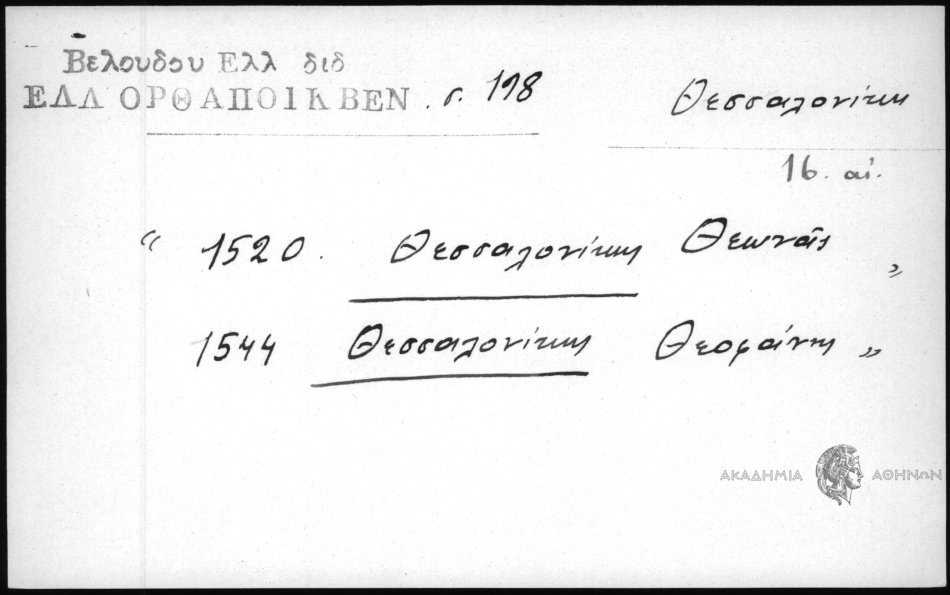 Βελουδου Ελλ διδ
ΕΛΛ ΟΡΘ ΑΠΟΙΚ ΒΕΝ . σ. 198
Θεσσαλονίκη
16. αἰ.
“ 1520. Θεσσαλονίκης Θεωνᾶς „
1544 Θεσσαλονίκης Θεοφάνης „
ΑΚΑΔΗΜΙΑ ΑΘΗΝΩΝ